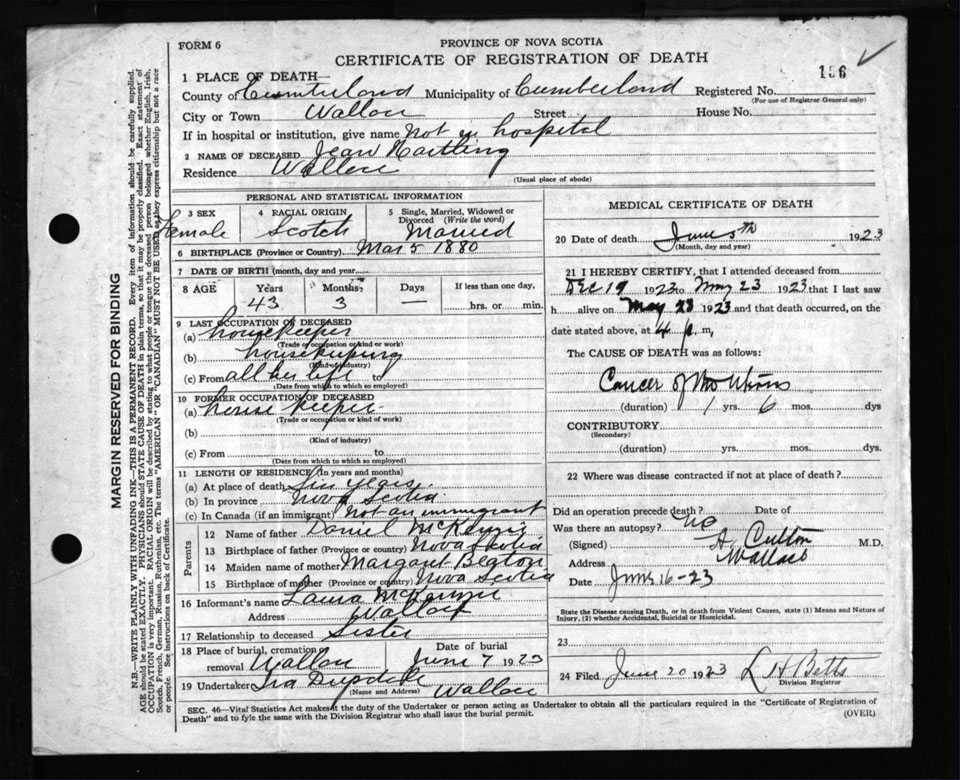 FORM 6
PROVINCE OF NOVA SCOTIA
CERTIFICATE OF REGISTRATION OF DEATH
156
1 PLACE OF DEATH—
County of Cumberland Municipality of Cumberland Registered No.
(For use of Registrar General only)
City or Town Wallace Street House No.
If in hospital or institution, give name Not in hospital
2 NAME OF DECEASED Jean Nailling
Residence Wallace
(Usual place of abode)
PERSONAL AND STATISTICAL INFORMATION
3 SEX 4 RACIAL ORIGIN 5 Single, Married, Widowed or Divorced (Write the word)
Female Scotch Married
6 BIRTHPLACE (Province or Country) Mar 5 1880
7 DATE OF BIRTH (month, day and year)
8 AGE Years Months Days If less than one day,
43 3 — hrs. or min.
9 LAST OCCUPATION OF DECEASED
(a) housekeeper
(Trade or occupation or kind or work)
(b) housekeeping
(Kind of industry)
(c) From all her life to
(Date from which so employed)
10 FORMER OCCUPATION OF DECEASED
(a) house keeper
(Trade or occupation or kind of work)
(b)
(Kind of industry)
(c) From to
(Date from which so employed)
11 LENGTH OF RESIDENCE (In years and months)
(a) At place of death Six years
(b) In province Nova Scotia
(c) In Canada (if an immigrant) Not an immigrant
Parents
12 Name of father Daniel McKenzie
13 Birthplace of father (Province or country) Nova Scotia
14 Maiden name of mother Margaret
15 Birthplace of mother (Province or country) Nova Scotia
16 Informant's name Laura McKenzie
Address Wallace
17 Relationship to deceased Sister
18 Place of burial, cremation or removal Wallace Date of burial June 7 1923
19 Undertaker Ira Wallace
(Name and Address)
MEDICAL CERTIFICATE OF DEATH
20 Date of death June 5th 1923
(Month, day and year)
21 I HEREBY CERTIFY, that I attended deceased from
Dec 19 1922 to May 23 1923 that I last saw
h alive on May 23 1923 and that death occurred, on the
date stated above, at 4 p. m,
The CAUSE OF DEATH was as follows:
Cancer of the Uterus
(duration) 1 yrs. 6 mos. dys
CONTRIBUTORY
(Secondary)
(duration) yrs. mos. dys.
22 Where was disease contracted if not at place of death?
Did an operation precede death? No Date of
Was there an autopsy?
(Signed) A. Culton M.D.
Address Wallace
Date June 16-23
State the Disease causing Death, or in death from Violent Causes, state (1) Means and Nature of
Injury, (2) whether Accidental, Suicidal or Homicidal.
23
24 Filed June 20 1923 L H Betts
Division Registrar
SEC. 46—Vital Statistics Act makes it the duty of the Undertaker or person acting as Undertaker to obtain all the particulars required in the "Certificate of Registration of
Death" and to fyle the same with the Division Registrar who shall issue the burial permit.
(OVER)
MARGIN RESERVED FOR BINDING
N.B.—WRITE PLAINLY WITH UNFADING INK—THIS IS A PERMANENT RECORD. Every item of information should be carefully supplied.
AGE should be stated EXACTLY. PHYSICIANS should STATE CAUSE OF DEATH in plain terms, so that it may be properly classified. Exact statement of
OCCUPATION is very important. RACIAL ORIGIN will be described by stating to what people or tongue the deceased person belonged whether English, Irish,
Scotch, French, German, Russian, Ruthenian, etc. The terms "AMERICAN" OR "CANADIAN" MUST NOT BE USED as they express citizenship but not a race
or people. See instructions on back of Certificate.